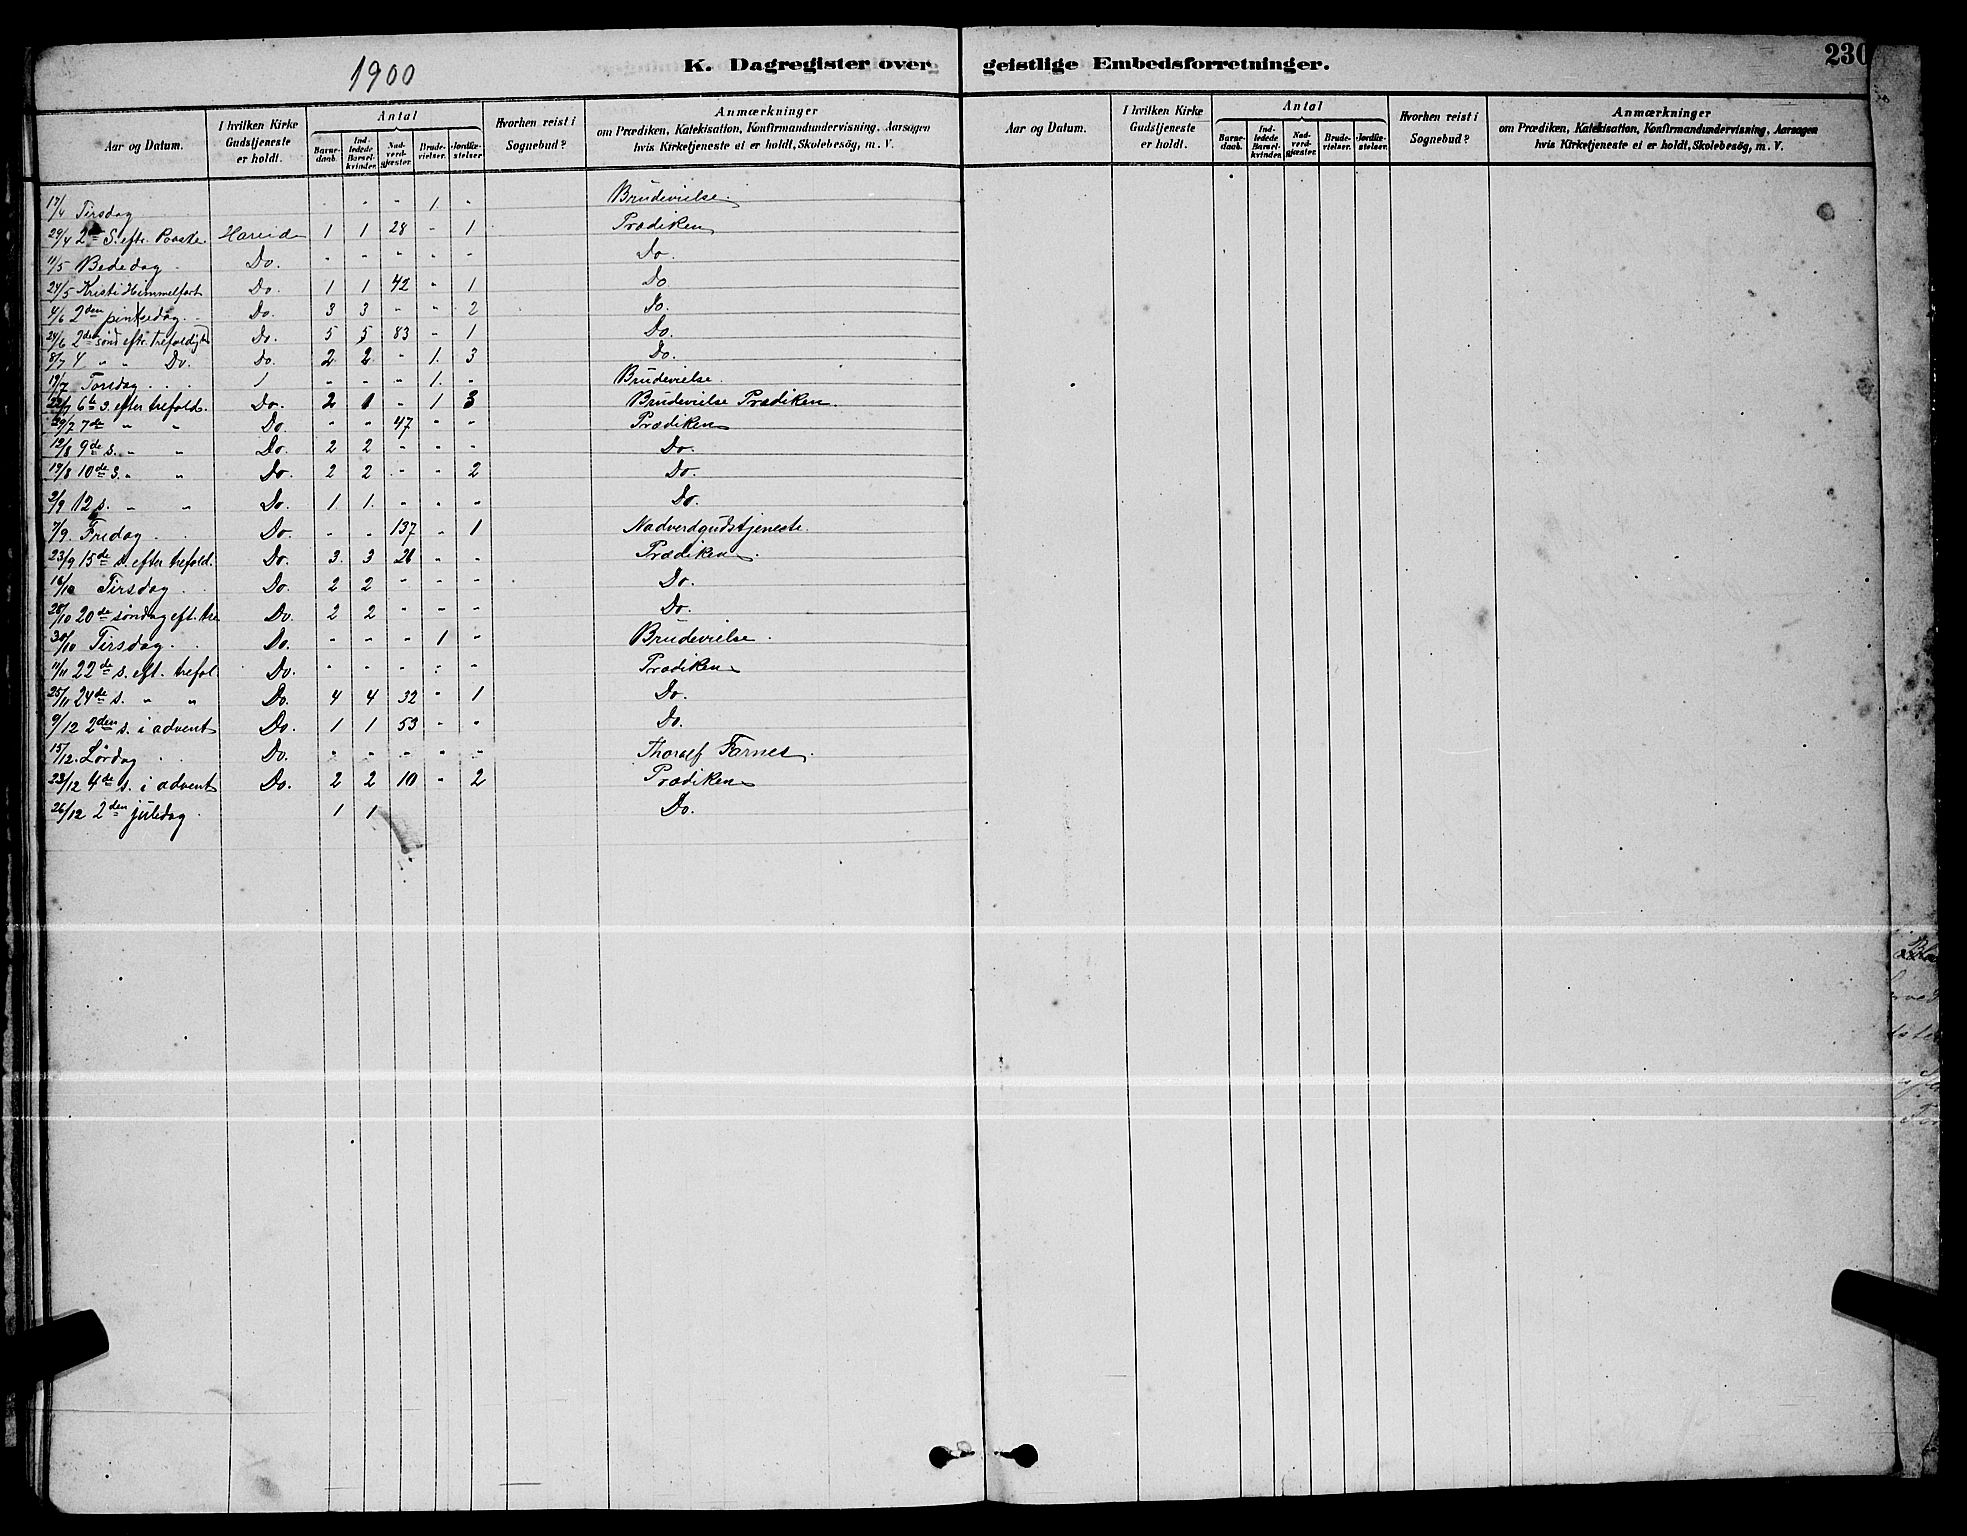 1900
K. Dagregister over geistlige Embedsforretninger.
230
Aar og Datum. | I hvilken Kirke Gudstjeneste er holdt. | Antal | Barnedaab. | Indledede Barselkvinder. | Nadverdgjæster. | Brudevielser. | Jordfæstelser. | Hvorhen reist i Sognebud? | Anmærkninger om Prædiken, Katekisation, Konfirmandundervisning, Aarsagen hvis Kirketjeneste ei er holdt, Skolebesög, m. V.
17/4 Tirsdag | | - | - | - | 1. | - | | Brudevielse.
29/4 2den S. eftr. Paaske. | Hareid | 1 | 1 | 28 | - | 1 | | Prædiken
11/5 Bededag | Do. | - | - | - | - | - | | Do.
24/5 Kristi Himmelfart | Do. | 1 | 1 | 42 | - | 1 | | Do
4/6 2den pintsedag. | Do. | 3 | 3 | - | - | 2 | | Do.
24/6 2den sønd eftr. trefoldighd | Do. | 5 | 5 | 83 | - | 1 | | Do.
8/7 4 " " Do. | Do. | 2 | 2 | - | 1. | 3 | | Do.
19/7 Torsdag | | - | - | - | 1. | - | | Brudevielse.
22/7 6te s. efter trefold. | Do. | 2 | 1 | - | 1 | 3 | | Brudevielse Prædiken.
29/7 7de " " | Do. | - | - | 47 | - | - | | Prædiken
12/8 9de s. " " | Do. | 2 | 2 | - | - | - | | Do.
19/8 10de s. " " | Do. | 2 | 2 | - | - | 2 | | Do.
2/9 12 s. " " | Do. | 1. | 1. | - | - | - | | Do.
7/9. Fredag | Do. | - | - | 137 | - | 1 | | Nadverdgudstjeneste.
23/9 15de s. efter trefold. | Do. | 3. | 3 | 26 | - | - | | Prædiken.
16/10 Tirsdag | Do. | 2 | 2 | - | - | - | | Do.
28/10 20de søndag eft. tre. | Do. | 2 | 2 | - | - | - | | Do.
30/10 Tirsdag | Do. | - | - | - | 1 | - | | Brudevielse.
11/11 22de s. eft. trefol. | Do. | - | - | - | - | - | | Prædiken
25/11 24de s. " " | Do. | 4 | 4 | 32 | - | 1 | | Do.
9/12 2den s. i advent | Do. | 1 | 1 | 53 | - | - | | Do.
15/12. Lørdag | Do. | - | - | - | - | - | | Thoralf Farnes.
23/12 4de s. i advent | Do. | 2 | 2 | 10 | - | 2 | | Prædiken
26/12 2den juledag. | | 1 | 1 | | | | | Do.
Aar og Datum. | I hvilken Kirke Gudstjeneste er holdt. | Antal | Barnedaab. | Indledede Barselkvinder. | Nadverdgjæster. | Brudevielser. | Jordfæstelser. | Hvorhen reist i Sognebud? | Anmærkninger om Prædiken, Katekisation, Konfirmandundervisning, Aarsagen hvis Kirketjeneste ei er holdt, Skolebesög, m. V.